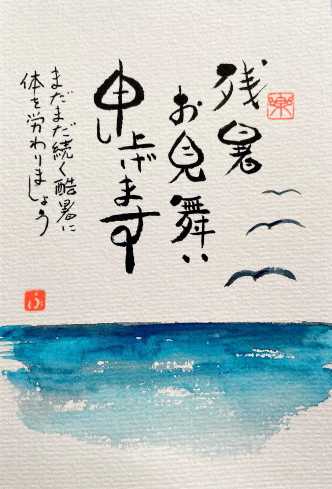 残暑
お見舞い
申し上げます
まだまだ続く酷暑に
体を労わりましょう
楽
ふ